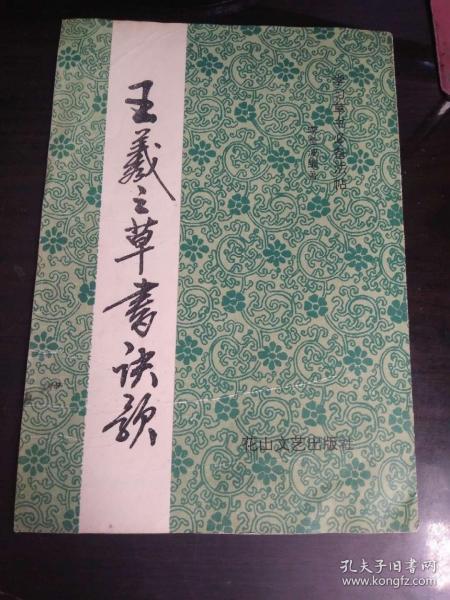 学习草书必备法帖
王羲之草书诀歌
花山文艺出版社
孔夫子旧书网
www.kongfz.com